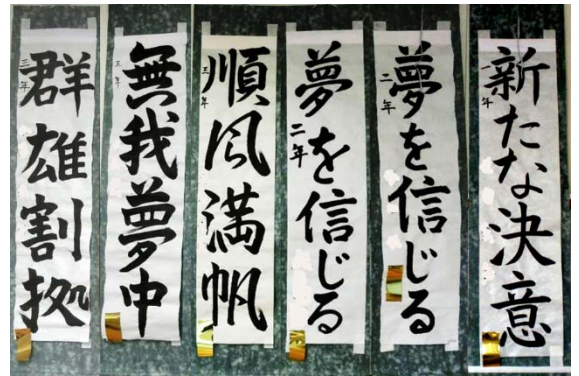 新たな決意
一年
夢を信じる
二年
夢を信じる
二年
順風満帆
三年
無我夢中
三年
群雄割拠
三年